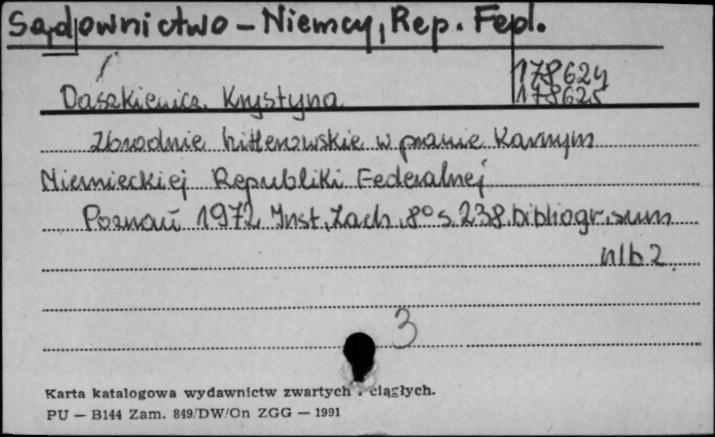 Sądownictwo - Niemcy, Rep. Fed.
178624
178625
Daszkiewicz Krystyna
Zbrodnie hitlerowskie w prawie karnym
Niemieckiej Republiki Federalnej
Poznań 1972 Inst. Zach. 8° s. 238. bibliogr. sum
nlb 2.
3
Karta katalogowa wydawnictw zwartych i ciągłych.
PU — B144 Zam. 849/DW/On ZGG — 1991